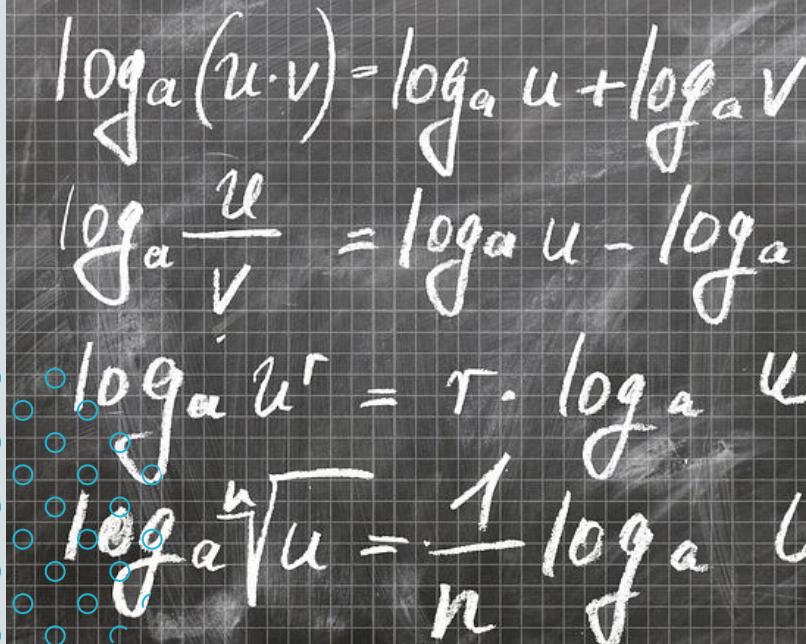 logₐ(u·v) = logₐ u + logₐ v
logₐ u/v = logₐ u - logₐ
logₐ uʳ = r · logₐ u
logₐ ⁿ√u = 1/n logₐ